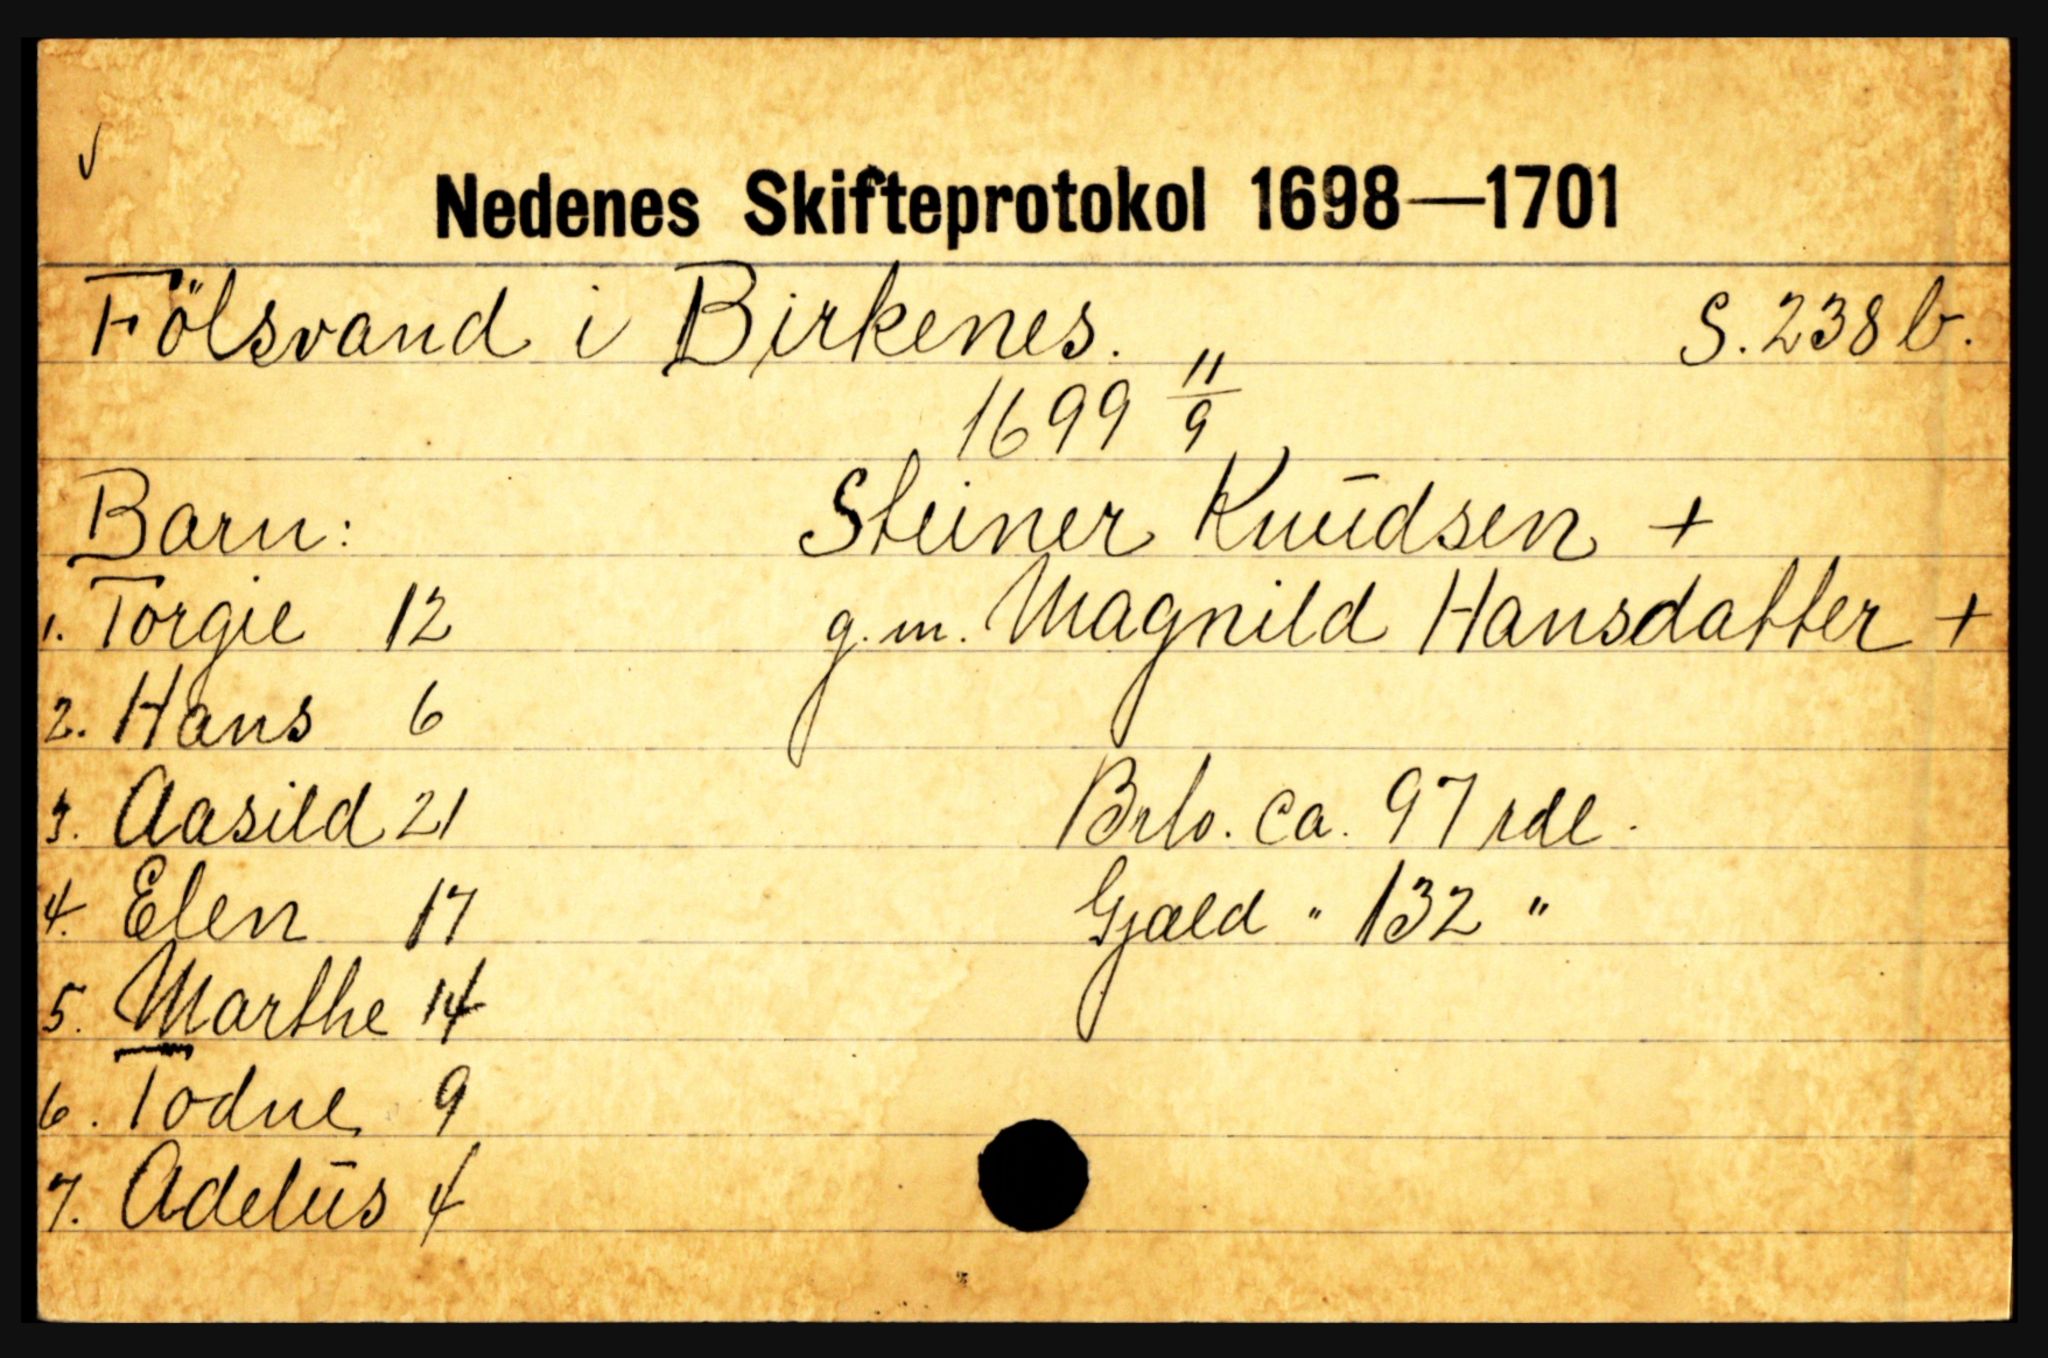 Nedenes Skifteprotokol 1698—1701
Fölsvand i Birkenes. S. 238 b.
1699 11/9
Barn: Steiner Knudsen +
1. Torgie 12 g.m. Magnild Hansdatter +
2. Hans 6
3. Aasild 21 Brto. ca. 97 rdl.
4. Elen 17 Gjæld " 132 "
5. Marthe 14
6. Todne 9
7. Adelus 4